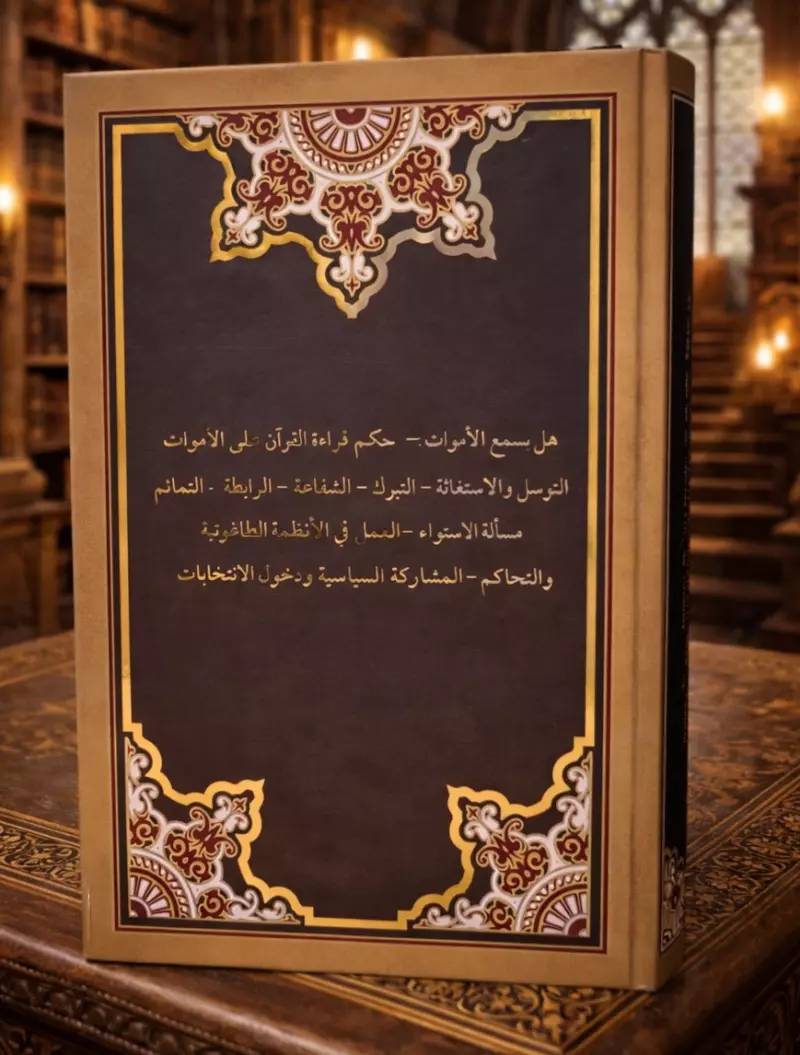 هل يسمع الأموات – حكم قراءة القرآن على الأموات
التوسل والاستغاثة – التبرك – الشفاعة – الرابطة - التمائم
مسألة الاستواء – العمل في الأنظمة الطاغوتية
والتحاكم – المشاركة السياسية ودخول الانتخابات